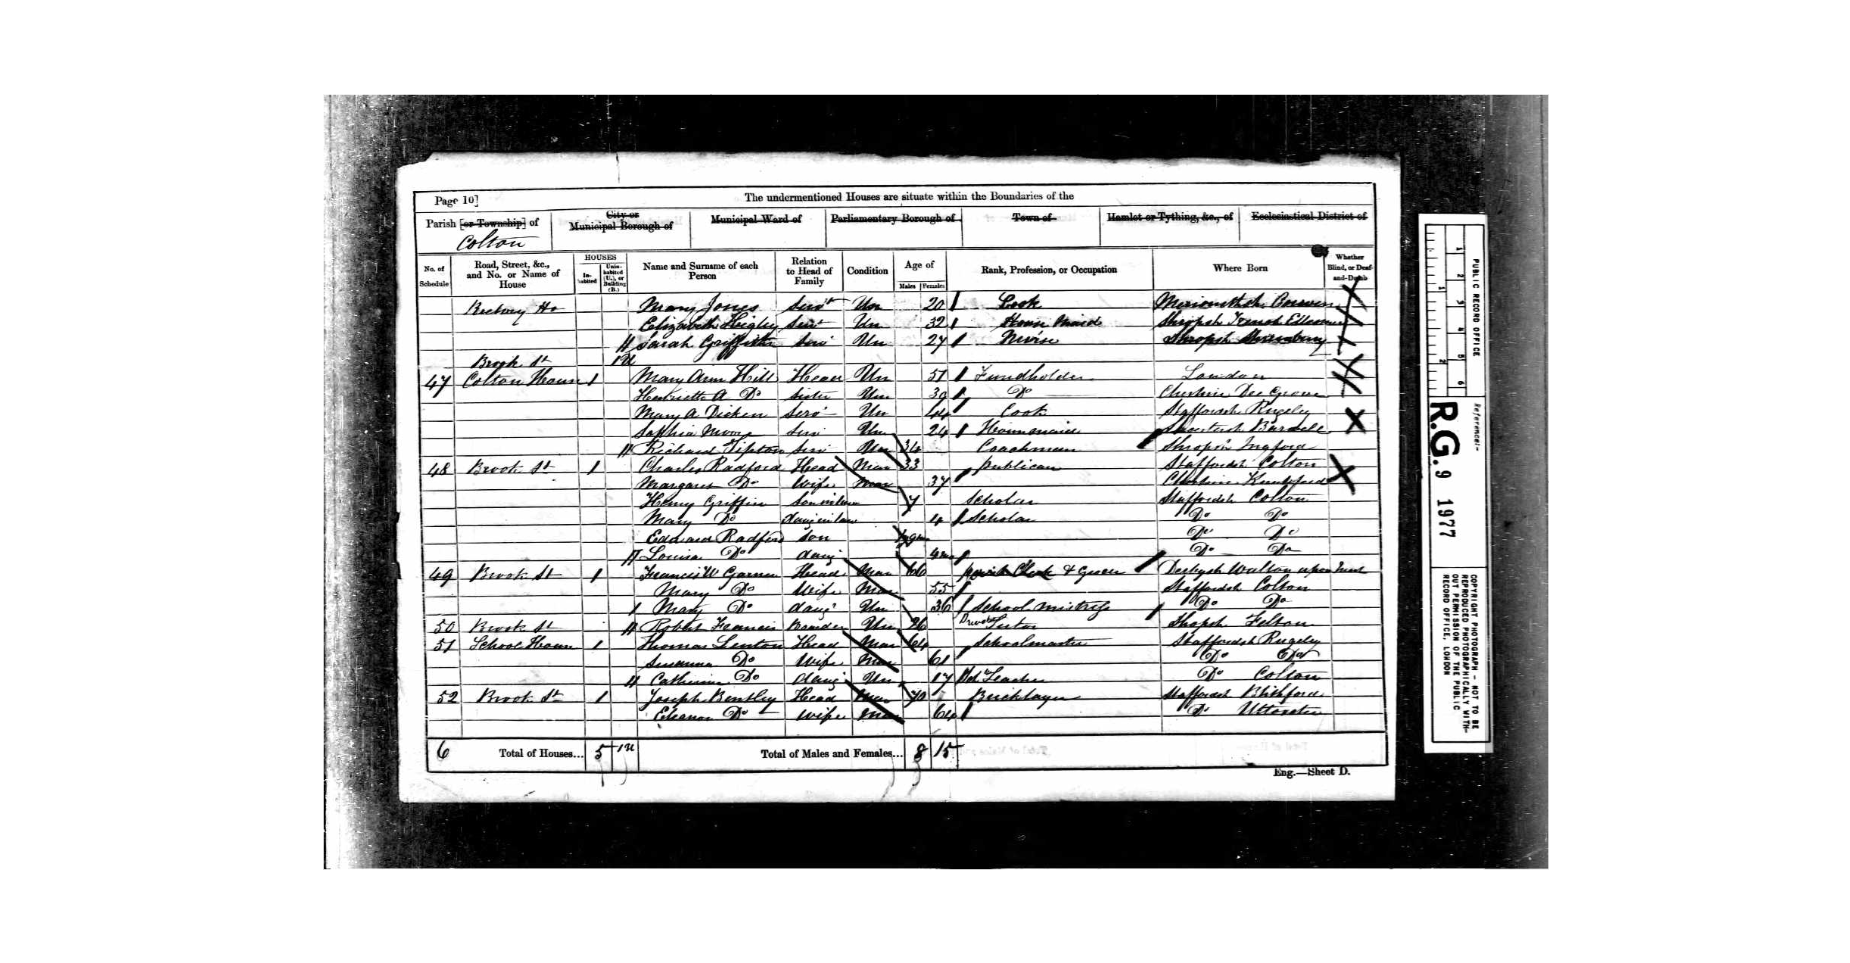 Page 10]
The undermentioned Houses are situate within the Boundaries of the
Parish [or Township] of
Colton
City or
Municipal Borough of
Municipal Ward of
Parliamentary Borough of
Town of
Hamlet or Tything, &c., of
Ecclesiastical District of
No. of Schedule
Road, Street, &c., and No. or Name of House
HOUSES
In-habited
Unin-habited (U.), or Building (B.)
Name and Surname of each Person
Relation to Head of Family
Condition
Age of
Males
Females
Rank, Profession, or Occupation
Where Born
Whether Blind, or Deaf-and-Dumb
Rectory Ho Mary Jones Servt Un 20 Cook
Elizabeth Servt Un 32 House Maid
Sarah Griffiths Serv Un 27 Nurse
Brook St 1 U
47 Colton House 1 Mary Ann Hill Head Un 51 Fundholder London
Henrietta A Do Sister Un 39 Do Cheshire
Mary A Dicken Serv Un 44 Cook Staffordsh Rugeley
Sophia Serv Un 24 Housemaid
Richard Tipton Serv Un 34 Coachman Shrops
48 Brook St 1 Charles Radford Head Mar 33 Publican Staffordsh Colton
Margaret Do Wife Mar 37 Cheshire Knutsford
Henry Griffin Son in law 7 Scholar Staffordsh Colton
Mary Do daug in law 4 Scholar Do Do
Edward Radford Son Do Do
Louisa Do daug Do Do
49 Brook St 1 Francis W Garner Head Mar 66 Parish Clerk & Grocer Derbysh Walton upon Trent
Mary Do Wife Mar 55 Staffordsh Colton
Mary Do daug Un 36 School Mistress Do Do
50 Brook St Robert Francis Boarder Un 26 Private Tutor Shropsh Felton
51 School House 1 Thomas Lenton Head Mar 64 Schoolmaster Staffordsh Rugeley
Susanna Do Wife Mar 61 Do Do
Catherine Do daug Un 17 Teacher Do Colton
52 Brook St 1 Joseph Bentley Head Mar 70 Bricklayer Staffordsh Blithford
Eleanor Do Wife Mar 64 Do Uttoxeter
6 Total of Houses... 5 1U Total of Males and Females... 8 15
Eng.—Sheet D.
PUBLIC RECORD OFFICE
Reference:-
R.G. 9 1977
COPYRIGHT PHOTOGRAPH - NOT TO BE
REPRODUCED PHOTOGRAPHICALLY WITH-
OUT PERMISSION OF THE PUBLIC
RECORD OFFICE, LONDON